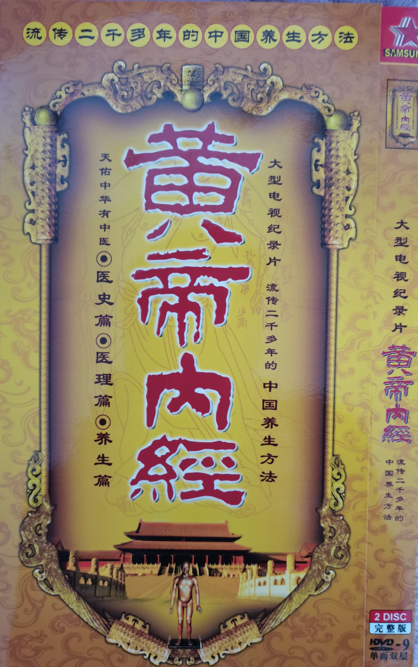 流传二千多年的中国养生方法
黄帝内經
大型电视纪录片 流传二千多年的 中国养生方法
天佑中华有中医◉医史篇◉医理篇◉养生篇
SAMSUN
黄帝内經
大型电视纪录片
黄帝内經
流传二千多年的
中国养生方法
2 DISC
完整版
HDVD-9
单面双层